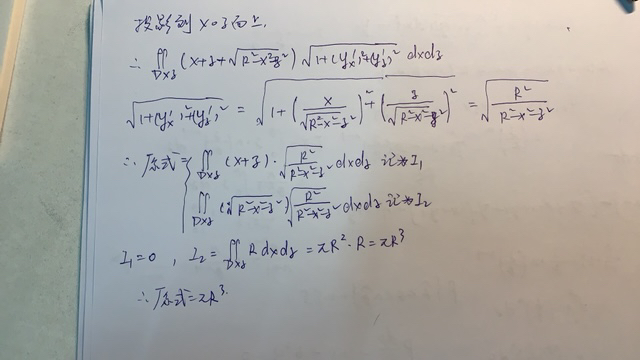 投影到xoz面上.
∴ ∬_{Dxz} (x+z+√(R²-x²-z²)) √(1+(y'x)²+(y'z)²) dxdz
√(1+(y'x)²+(y'z)²) = √(1+(x/√(R²-x²-z²))²+(z/√(R²-x²-z²))²) = √(R²/(R²-x²-z²))
∴ 原式= { ∬_{Dxz} (x+z)·√(R²/(R²-x²-z²)) dxdz 记为I₁
∬_{Dxz} (√(R²-x²-z²)) √(R²/(R²-x²-z²)) dxdz 记为I₂
I₁=0 , I₂ = ∬_{Dxz} R dxdz = πR²·R = πR³
∴ 原式=πR³.